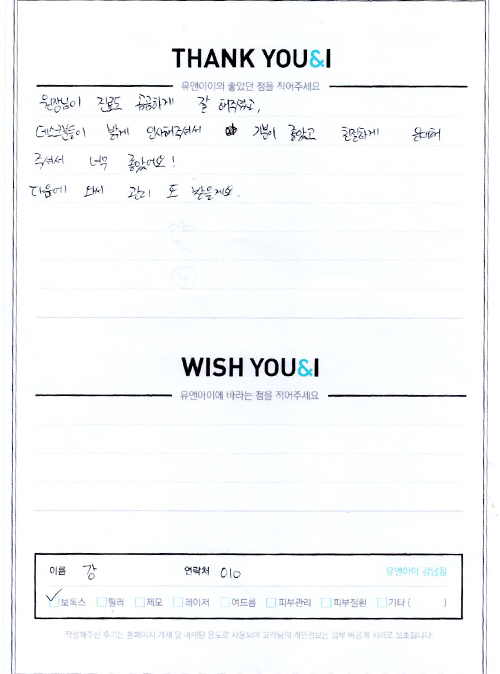 THANK YOU&I
유앤아이의 좋았던 점을 적어주세요
원장님이 진료도 꼼꼼하게 잘 해주셨고,
데스크분들이 밝게 인사해주셔서 기분이 좋았고 친절하게 응대해
주셔서 너무 좋았어요!
다음에 와서 관리 또 받을게요.
WISH YOU&I
유앤아이에 바라는 점을 적어주세요
이름 강 연락처 010 유앤아이 강남점
보톡스 필러 제모 레이저 여드름 피부관리 피부질환 기타 ( )
작성해주신 후기는 홈페이지 게재 및 마케팅 용도로 사용되며 고객님의 개인정보는 일부 비공개 처리로 보호됩니다.